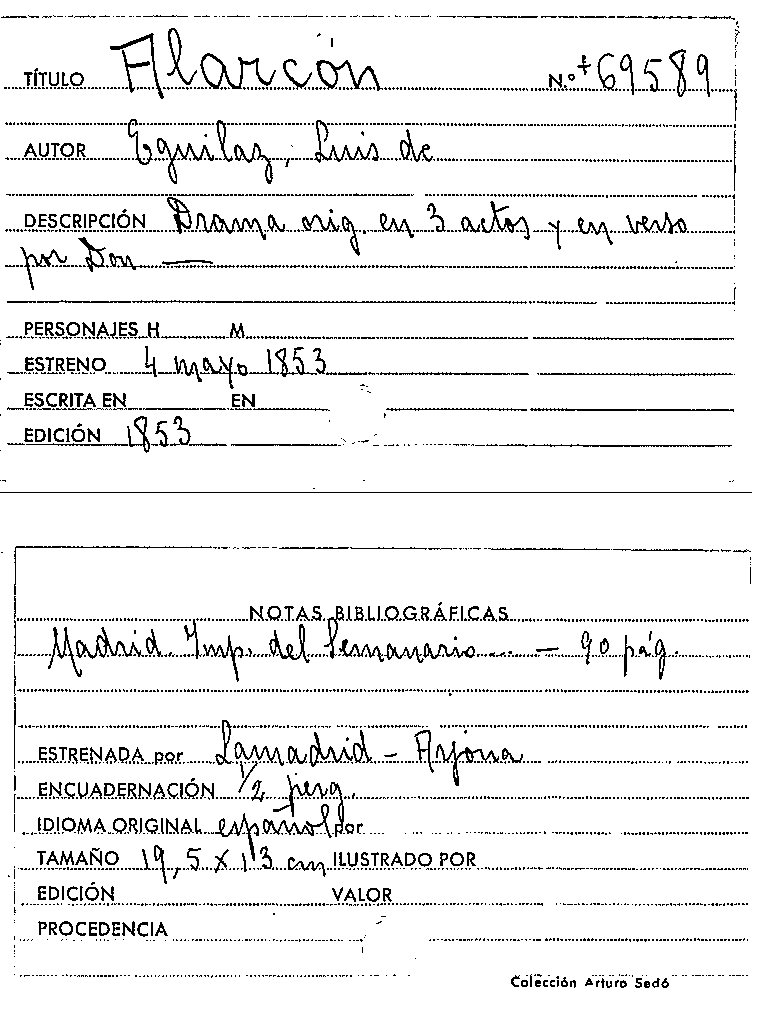 TÍTULO Alarcón N.º + 69589
AUTOR Eguilaz, Luis de
DESCRIPCIÓN Drama orig. en 3 actos y en verso
por Don —
PERSONAJES H M
ESTRENO 4 mayo 1853
ESCRITA EN EN
EDICIÓN 1853
NOTAS BIBLIOGRÁFICAS
Madrid. Imp. del Semanario... — 90 pág.
ESTRENADA por Lamadrid - Arjona
ENCUADERNACIÓN 1/2 perg.
IDIOMA ORIGINAL español por
TAMAÑO 19,5 x 13 cm ILUSTRADO POR
EDICIÓN VALOR
PROCEDENCIA
Colección Arturo Sedó